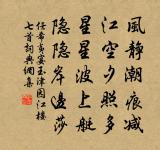 風靜潮痕減
江空夕照多
星星波上艇
隱隱岸邊莎
任希夷宴玉津園江樓
七首詞典網集